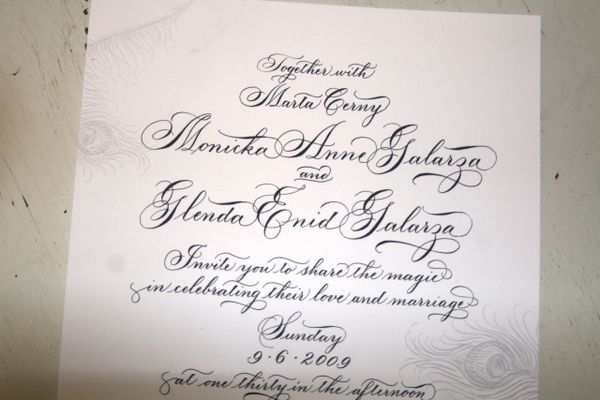 Together with
Marta Cerny
Monicka Anne Galarza
and
Glenda Enid Galarza
Invite you to share the magic
in celebrating their love and marriage
Sunday
9·6·2009
at one thirty in the afternoon